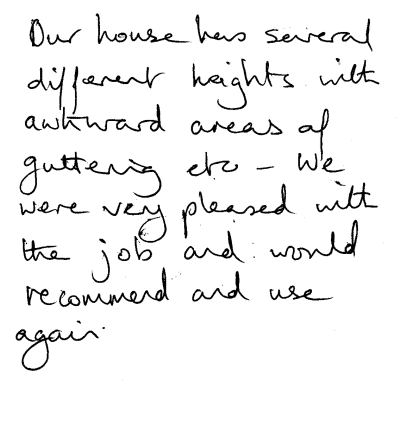 Our house has several
different heights with
awkward areas of
guttering etc – We
were very pleased with
the job and would
recommend and use
again.